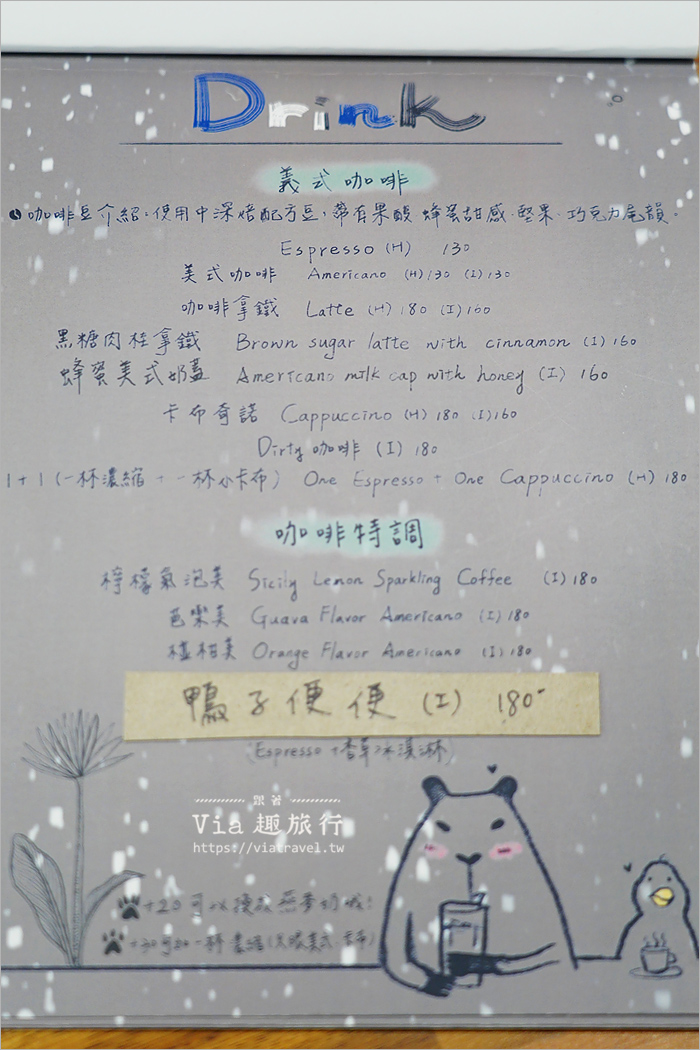 Drink
義式咖啡
咖啡豆介紹：使用中深焙配方豆，帶有果酸、蜂蜜甜感、堅果、巧克力尾韻。
Espresso (H) 130
美式咖啡 Americano (H) 130 (I) 130
咖啡拿鐵 Latte (H) 180 (I) 160
黑糖肉桂拿鐵 Brown sugar latte with cinnamon (I) 160
蜂蜜美式奶蓋 Americano milk cap with honey (I) 160
卡布奇諾 Cappuccino (H) 180 (I) 160
Dirty 咖啡 (I) 180
1+1 (一杯濃縮 + 一杯小卡布) One Espresso + One Cappuccino (H) 180
咖啡特調
檸檬氣泡美 Sicily Lemon Sparkling Coffee (I) 180
芭樂美 Guava Flavor Americano (I) 180
椪柑美 Orange Flavor Americano (I) 180
鴨子便便 (I) 180-
(Espresso + 香草冰淇淋)
跟著
Via趣旅行
https://viatravel.tw
+20 可以換成燕麥奶哦!
+30 可加一杯濃縮